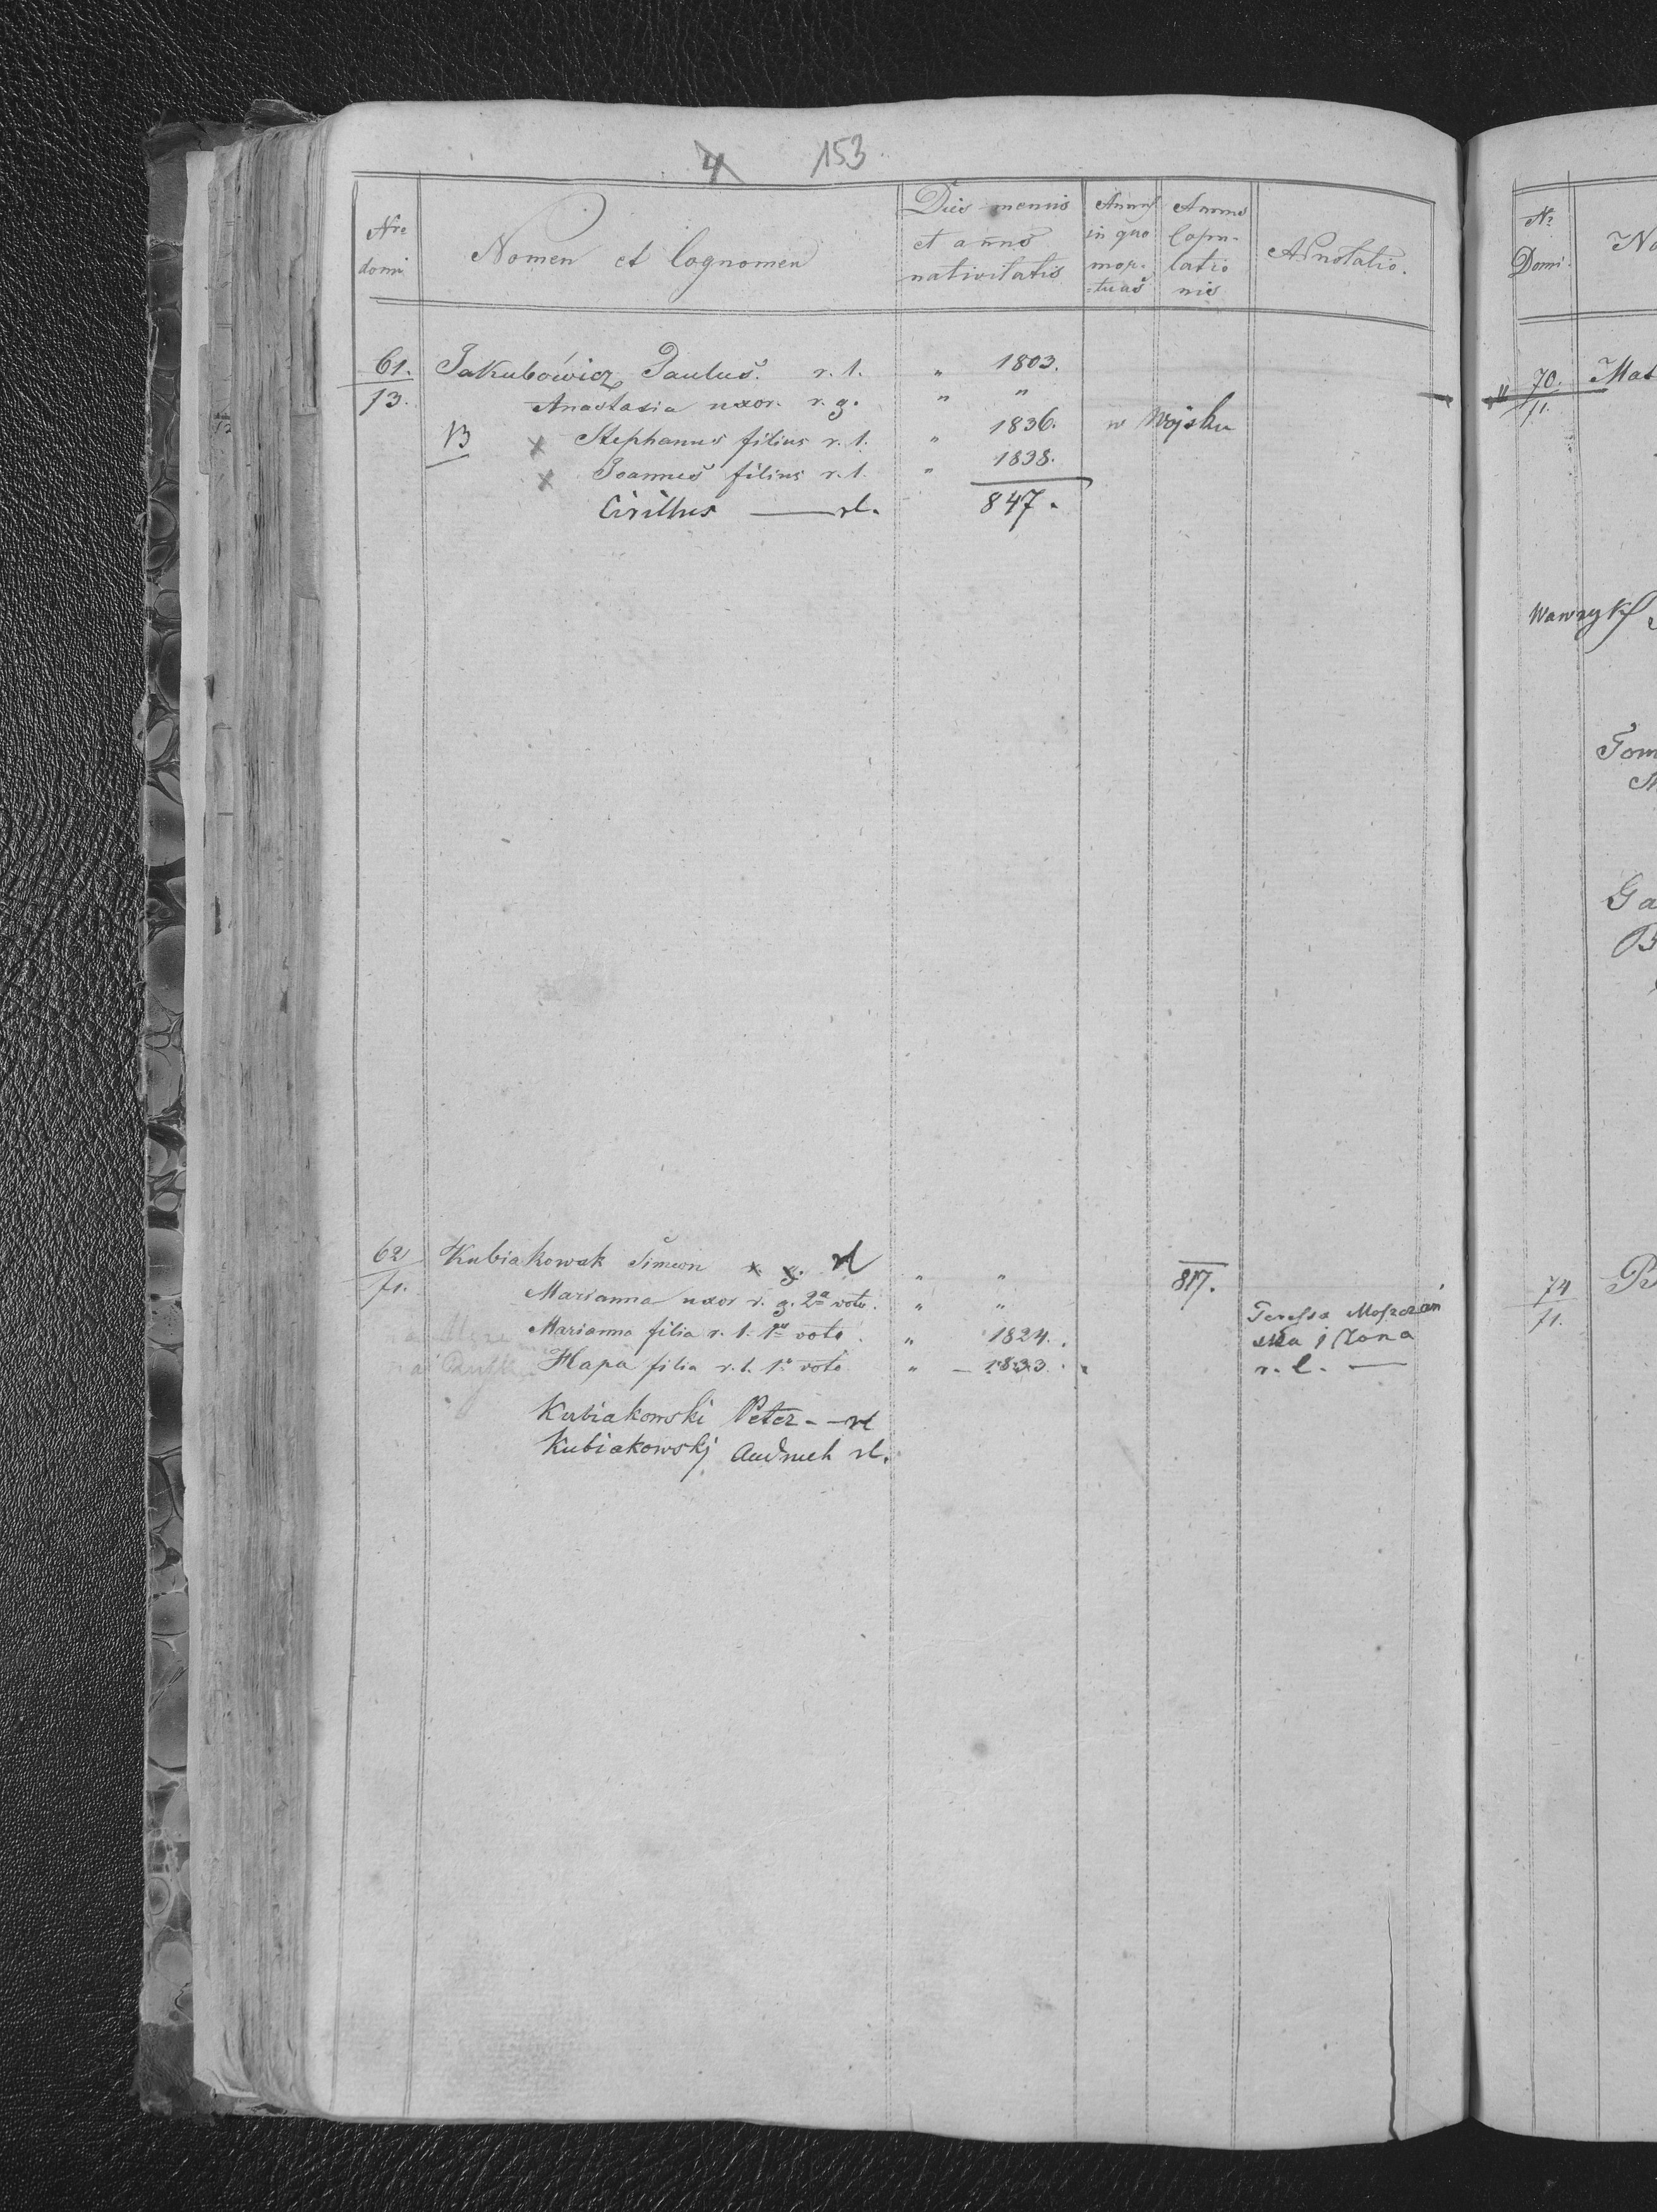 4 153
Nro domi
Nomen et Cognomen
Dies mensis et anno nativitatis
Annus in quo mor=tuus
Annus Copu-latio nis
Annotatio.
61. Jakubowicz Paulus. r. l. " 1803.
13. Anastasia uxor. r. g. " "
13 x Stephanus filius r. l. " 1836. w Wojsku
x Joannes filius r. l. " 1838.
Cirillus — rl. 847.
62 Kubiakowak Simeon r. g. rl " " 817.
71. Marianna uxor r. g. 2a voto. " "
Marianna filia r. l. 1o voto. " 1824.
Hapa filia r. l. 1o voto " – 1833.
Teressa
ska i Żona
r. l. —
Kubiakowski Peter - - rl
Kubiakowskj Andruch rl.
No Domi No
" 70. Mat
71.
Wawzyk
Tom
Ga
74
71.